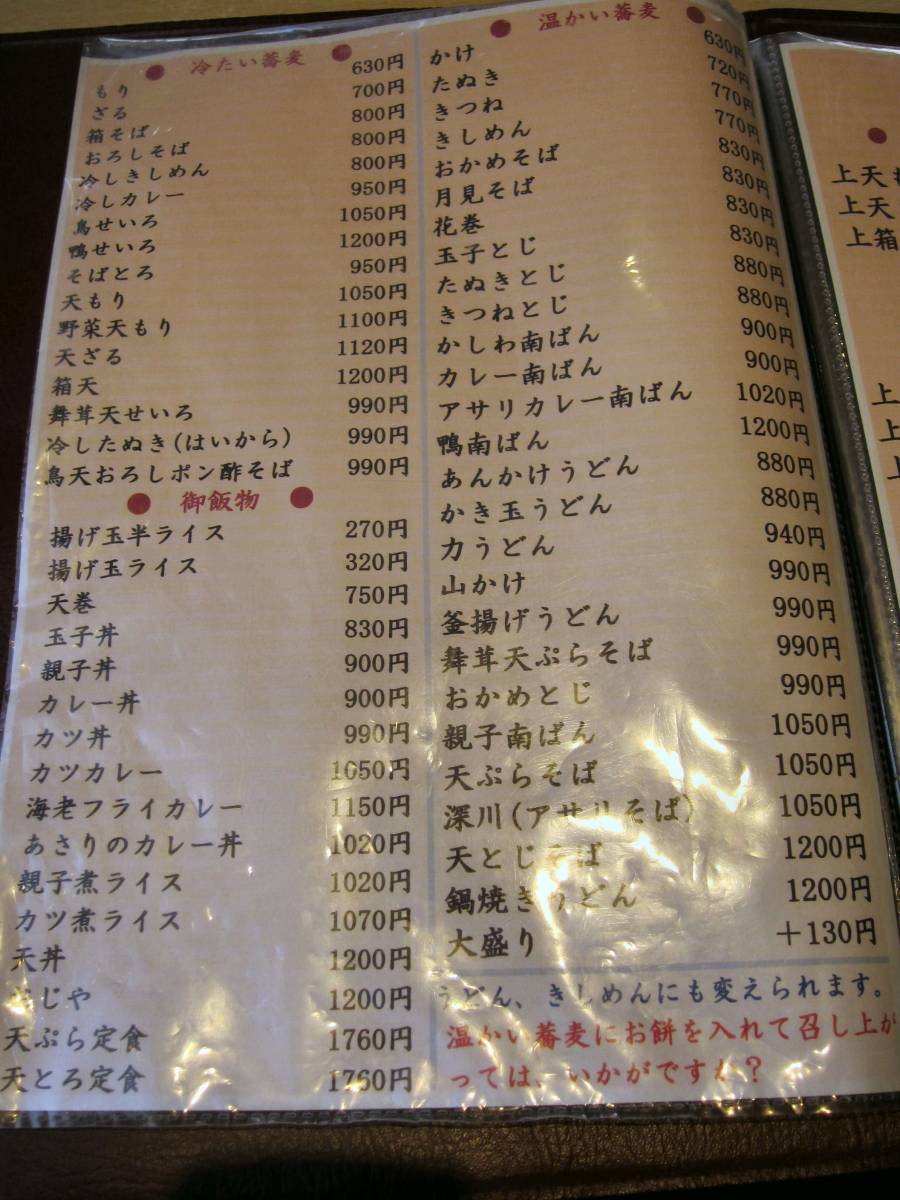 ● 冷たい蕎麦 ●
もり 630円
ざる 700円
箱そば 800円
おろしそば 800円
冷しきしめん 800円
冷しカレー 950円
鳥せいろ 1050円
鴨せいろ 1200円
そばとろ 950円
天もり 1050円
野菜天もり 1100円
天ざる 1120円
箱天 1200円
舞茸天せいろ 990円
冷したぬき(はいから) 990円
鳥天おろしポン酢そば 990円
● 御飯物 ●
揚げ玉半ライス 270円
揚げ玉ライス 320円
天巻 750円
玉子丼 830円
親子丼 900円
カレー丼 900円
カツ丼 990円
カツカレー 1050円
海老フライカレー 1150円
あさりのカレー丼 1020円
親子煮ライス 1020円
カツ煮ライス 1070円
天丼 1200円
おじや 1200円
天ぷら定食 1760円
天とろ定食 1760円
● 温かい蕎麦 ●
かけ 630円
たぬき 720円
きつね 770円
きしめん 770円
おかめそば 830円
月見そば 830円
花巻 830円
玉子とじ 830円
たぬきとじ 880円
きつねとじ 880円
かしわ南ばん 900円
カレー南ばん 900円
アサリカレー南ばん 1020円
鴨南ばん 1200円
あんかけうどん 880円
かき玉うどん 880円
力うどん 940円
山かけ 990円
釜揚げうどん 990円
舞茸天ぷらそば 990円
おかめとじ 990円
親子南ばん 1050円
天ぷらそば 1050円
深川(アサリそば) 1050円
天とじそば 1200円
鍋焼きうどん 1200円
大盛り +130円
うどん、きしめんにも変えられます。
温かい蕎麦にお餅を入れて召し上が
っては、いかがですか？
●
上天も
上天
上箱
上
上